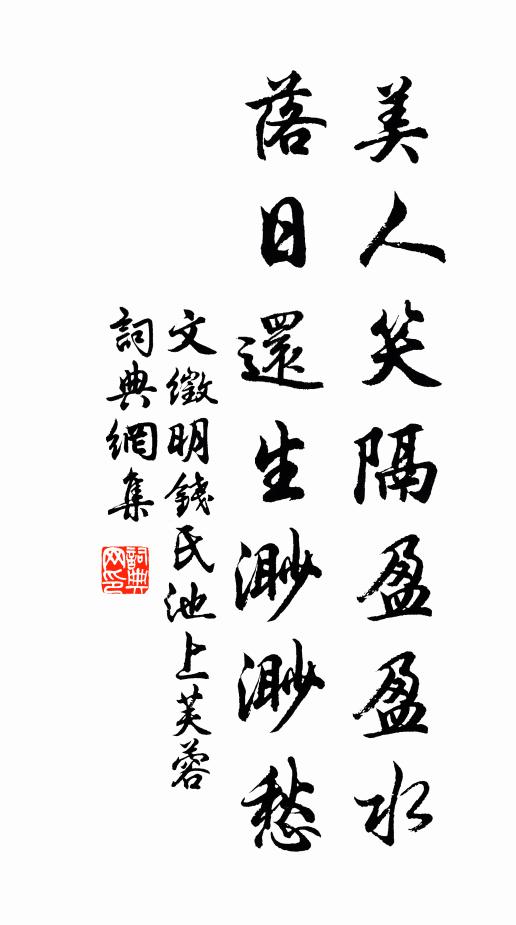 美人笑隔盈盈水
落日還生渺渺愁
文徵明錢氏池上芙蓉
詞典網集
詞典網印